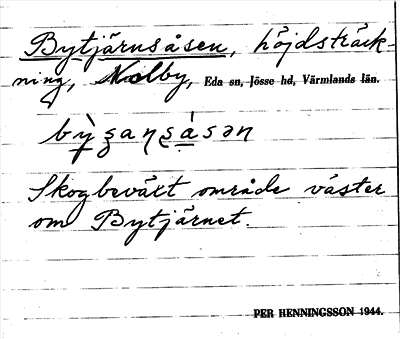 Bytjärnsåsen, höjdsträck-
ning, Nolby, Eda sn, Jösse hd, Värmlands län.
Skogbeväxt område väster
om Bytjärnet.
PER HENNINGSSON 1944.